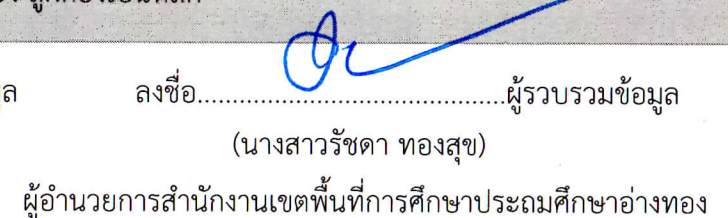 ล ลงชื่อ............................................ผู้รวบรวมข้อมูล
(นางสาวรัชดา ทองสุข)
ผู้อำนวยการสำนักงานเขตพื้นที่การศึกษาประถมศึกษาอ่างทอง